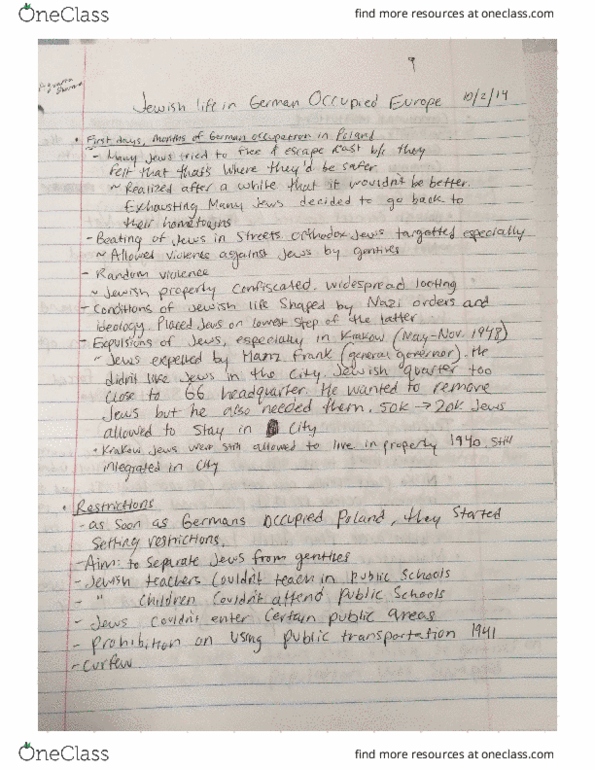 OneClass
find more resources at oneclass.com
Jewish life in German Occupied Europe 10/2/14
• First days, months of German occupation in Poland
- Many Jews tried to flee & escape East b/c they
felt that that's where they'd be safer
~ Realized after a while that it wouldn't be better.
Exhausting Many Jews decided to go back to
their hometowns
- Beating of Jews in Streets Orthodox Jews targetted especially
~ Allowed violence against Jews by gentiles
- Random violence
~ Jewish property confiscated, widespread looting
- Conditions of Jewish life Shaped by Nazi orders and
ideology. Placed Jews on lowest step of the latter
- Expulsions of Jews, especially in Krakow (May-Nov. 1948)
~ Jews expelled by Hanz Frank (general governor). He
didn't like Jews in the City. Jewish quarter too
close to GG headquarter. He wanted to remove
Jews but he also needed them. 50K → 20K Jews
allowed to stay in City
• Krakow Jews were still allowed to live in property 1940 still
integrated in City
• Restrictions
- as soon as Germans occupied Poland, they started
setting restrictions.
- Aim: to separate Jews from gentiles
- Jewish teachers couldn't teach in public schools
- " Children couldn't attend public schools
- Jews couldn't enter certain public areas
- Prohibition on using public transportation 1941
- curfew
OneClass
find more resources at oneclass.com